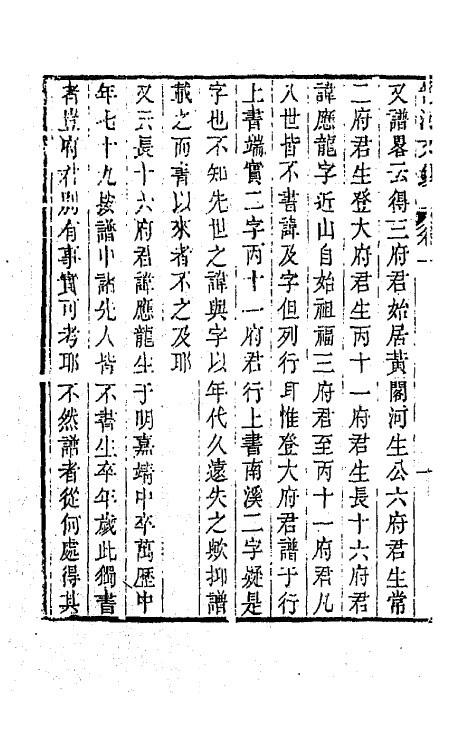 又譜畧云得三府君始居黃閣河生公六府君生常
二府君生登大府君生丙十一府君生長十六府君
諱應龍字近山自始祖福三府君至丙十一府君凡
八世皆不書諱及字但列行耳惟登大府君譜于行
上書端實二字丙十一府君行上書南溪二字疑是
字也不知先世之諱與字以年代久遠失之歟抑譜
載之而書以來者不之及耶
又云長十六府君諱應龍生于明嘉靖中卒萬歷中
年七十九按譜中諸先人皆不書生卒年歲此獨書
者豈府君別有事實可考耶不然譜者從何處得其